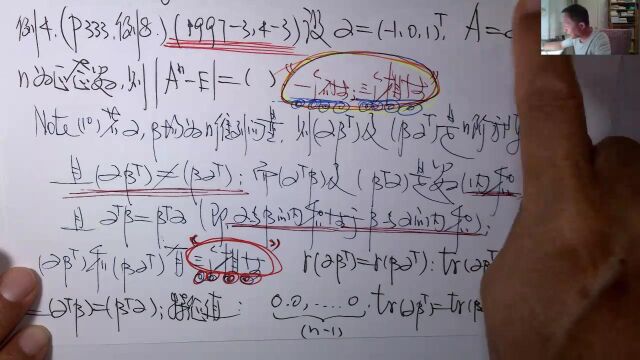 例4.(P333.例8.)(1997-3,4-3)设 α=(-1,0,1)ᵀ, A=α
n为正整数,则|Aⁿ-E|=( )
Note(1°) 若α,β均为n维列向量,则(αβᵀ)及(βαᵀ)是n阶
且(αβᵀ)≠(βαᵀ);而(αᵀβ)及(βᵀα)是数(内积
且 αᵀβ=βᵀα (即,α与β的内积等于β与α的内积);
(αβᵀ)和(βαᵀ)有"三相等" r(αβᵀ)=r(βαᵀ); tr(α
=(αᵀβ)=(βᵀα);特征值: 0.0,....0, tr(αβᵀ)=tr(β
(n-1)